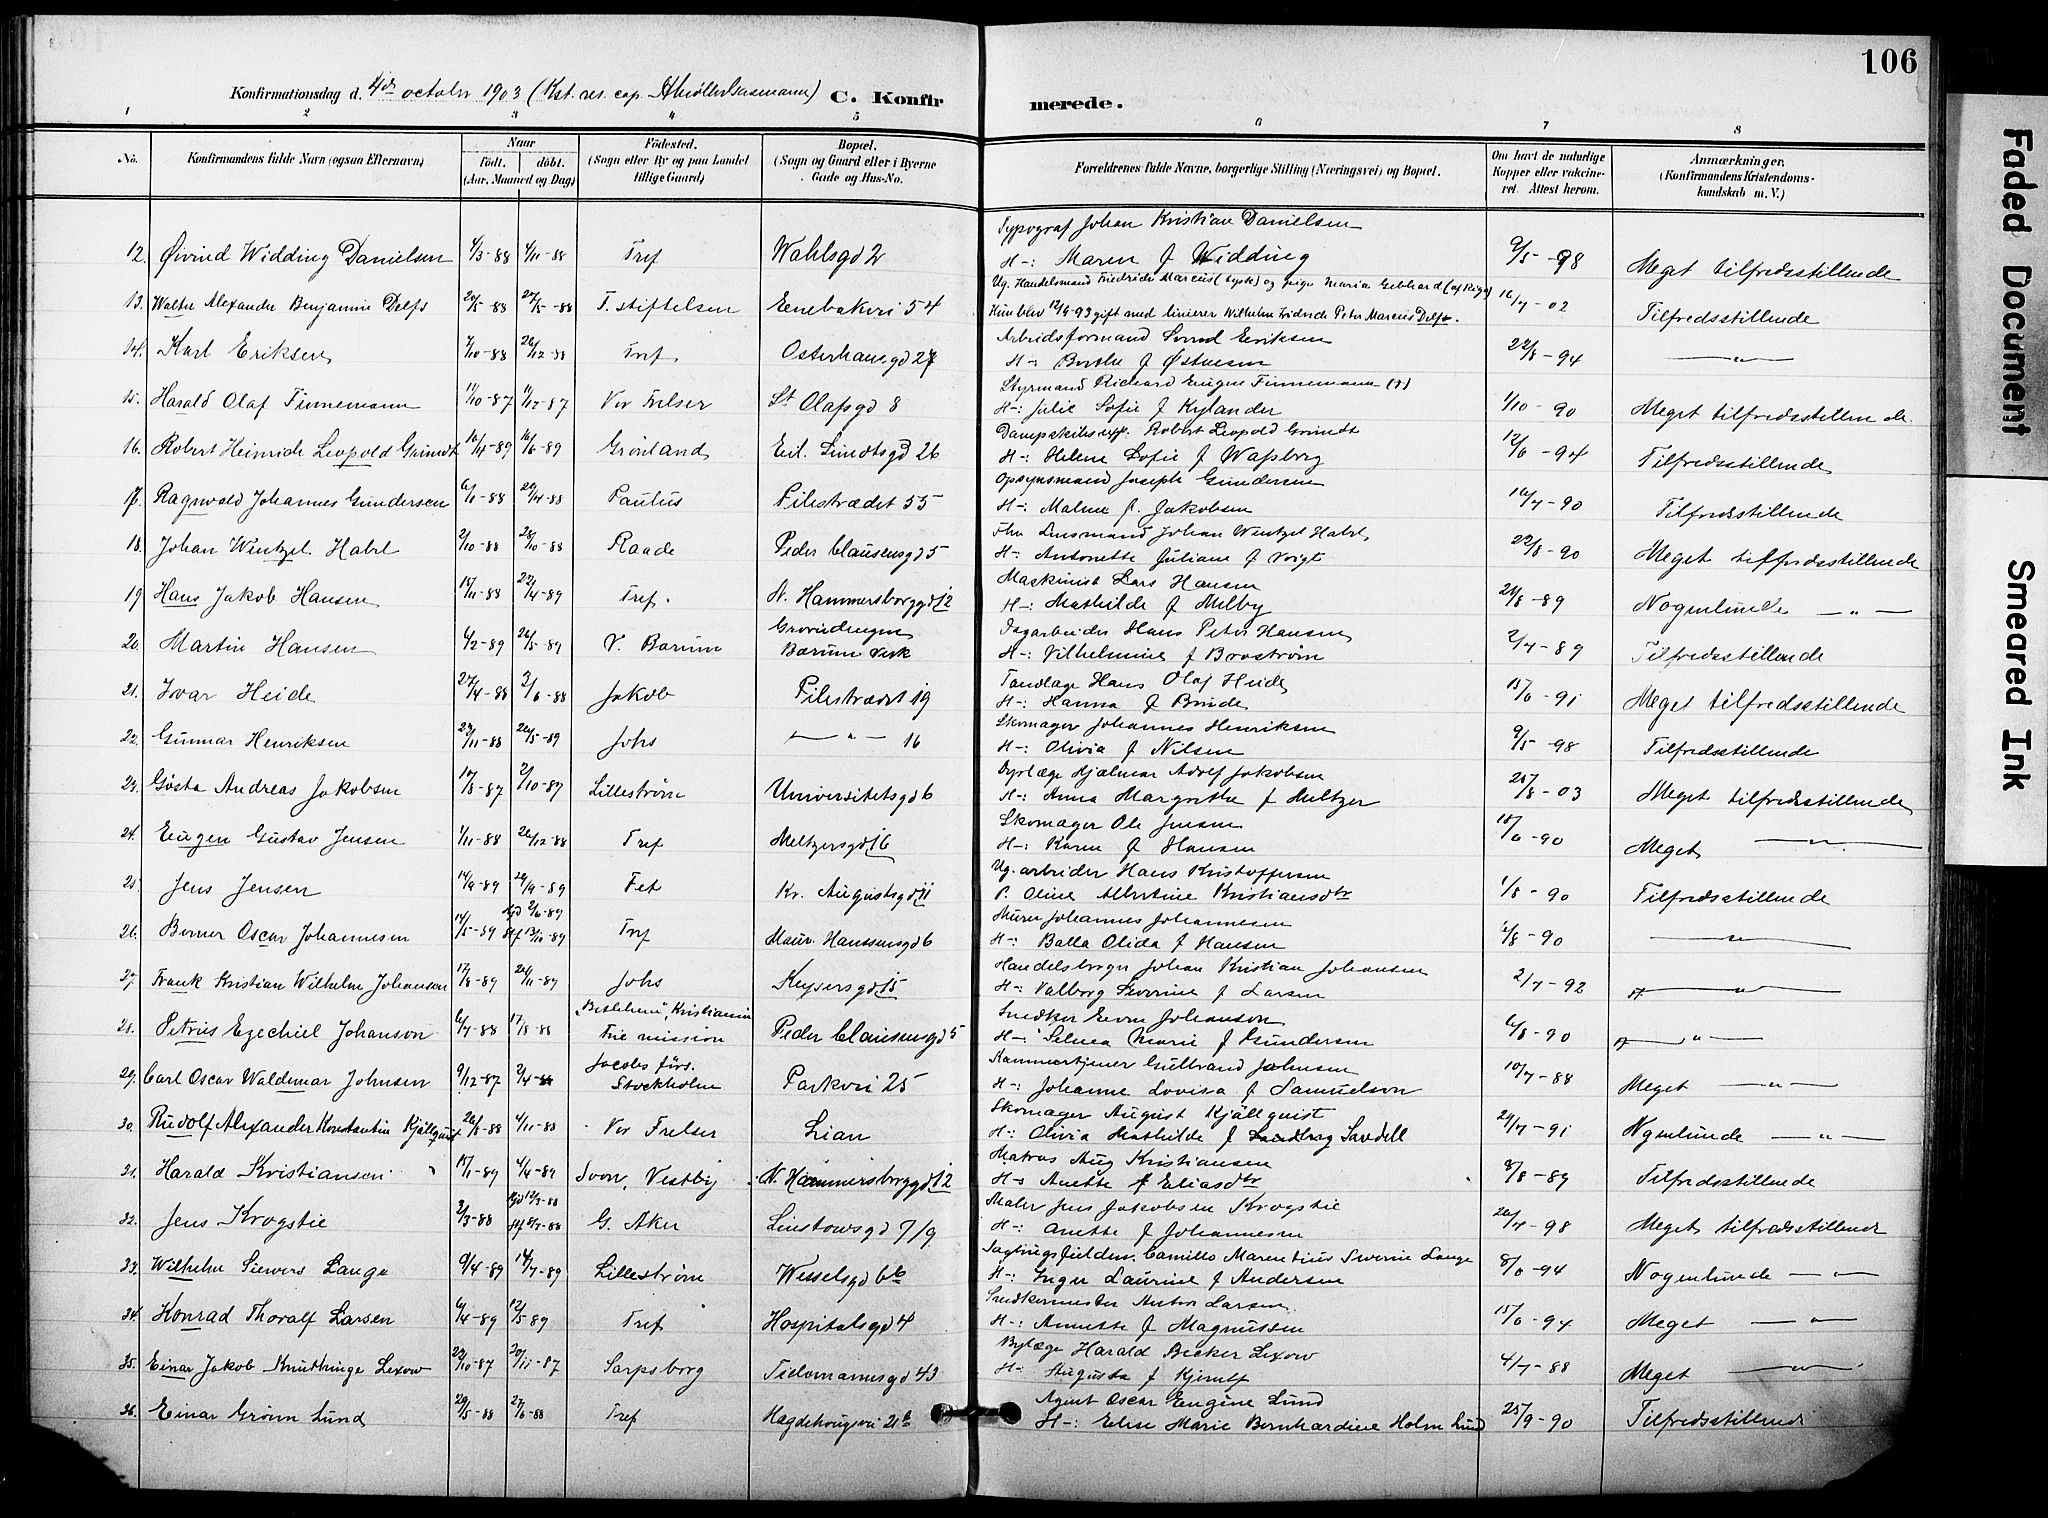 106
Konfirmationsdag d. 4de octobr 1903 (Kst. res. cap. C. Konfirmerede.
1 2 3 4 5 6 7 8
No. Konfirmandens fulde Navn (ogsaa Efternavn) Naar födt. döbt. (Aar, Maaned og Dag) Födested. (Sogn eller By og paa Landet tillige Gaard) Bopæl. (Sogn og Gaard eller i Byerne Gade og Hus-No. Forældrenes fulde Navne, borgerlige Stilling (Næringsvei) og Bopæl. Om havt de naturlige Kopper eller vakcineret. Attest herom. Anmærkninger, (Konfirmandens Kristendomskundskab m. V.)
Typograf Johan Kristian Danielsen
12. Øivind Widding Danielsen 4/3-88 4/11-88 Tref Wahlsgd 2 H-: Maren f Widding 9/5-98 Meget tilfredsstillende
Ug. Handelsmand Friedrich Marcus (tysk) og pige Maria Gebhard (af Riga)
13. Walter Alexander Benjamin Delfs 20/5-88 27/5-88 F. stiftelsen Enebakvei 54 Hun blev 12/9-93 gift med linierer Wilhelm Peter Marcus Delfs. 16/7-02 Tilfredsstillende
Arbeidsformand Svend Eriksen
14. Karl Eriksen 7/10-88 26/12-88 Tref Osterhausgd 27 H-: Berthe f Østensen 22/8-94 — " —
Styrmand Richard Eugen Finnemann (†)
15. Harald Olaf Finnemann 11/10-87 11/12-87 Vor Frelser St Olafsgd 8 H-: Julie Sofie f Kylander 1/10-90 Meget tilfredsstillende
Robert Leopold Grundt
16. Robert Heinrich Leopold Grundt 16/4-89 16/6-89 Grønland Eil. Sundtsgd 26 H-: Helene Sofie f Wassberg 12/6-94 Tilfredsstillende
Opsynsmand Joseph Gundersen
17. Ragnvald Johannes Gundersen 6/1-88 29/4-88 Paulus Pilestrædet 55 H-: Malene f. Jakobsen 16/7-90 Tilfredsstillende
Fhv Lensmand Johan Wentzel Habel
18. Johan Wentzel Habel 2/10-88 28/10-88 Raade Peder Clausensgd 5 H-: Antonette Juliane f Voigt 22/8-90 Meget tilfredsstillende
Maskinist Lars Hansen
19 Hans Jakob Hansen 15/11-88 22/4-89 Tref. N. Hammersborggd 12 H-: Mathilde f Melby 21/8-89 Nogenlunde — " —
Dagarbeider Hans Peter Hansen
20. Martin Hansen 6/2-89 26/5-89 V. Bærum Bærum Verk H-: Vilhelmine f Broström 2/7-89 Tilfredsstillende
Tandlæge Hans Olaf Heide
21. Ivar Heide 27/4-88 3/6-88 Jakob Pilestrædet 19 H-: Hanna f Binde 15/6-91 Meget tilfredsstillende
Skomager Johannes Henriksen
22. Gunnar Henriksen 23/11-88 26/5-89 Johs — " — 16 H-: Olivia f Nilsen 9/5-98 Tilfredsstillende
Dyrlæge Hjalmar Adolf Jakobsen
23. Gösta Andreas Jakobsen 17/8-87 2/10-87 Lillestrøm Universitetsgd 6 H-: Anna Margrethe f Meltzer 28/8-03 Meget tilfredsstillende
Skomager Ole Jensen
24. Eugen Gustav Jensen 1/11-88 26/12-88 Tref Meltzersgd 16 H-: Karen f Hansen 18/6-90 Meget — " —
Ug. arbeider Hans Kristoffersen
25. Jens Jensen 14/9-89 29/9-89 Fet Kr. Augustsgd 11 P. Oline Albertine Kristiansdtr 1/8-90 Tilfredsstillende
Murer Johannes Johannesen
26. Berner Oscar Johannesen 14/5-89 hjd 2/6-89 stf 13/10-89 Tref Maur. Hanssensgd 6 H-: Balla Olida f Hansen 6/8-90 — " —
Handelsborger Johan Kristian Johansen
27. Frank Kristian Wilhelm Johansen 17/8-89 24/11-89 Johs Keysersgd 15 H-: Valborg Severine f Larsen 2/7-92 — " —
"Betlehem", Kristiania
Snedker Johanson
28. Petrus Ezechiel Johanson 6/7-88 17/8-88 Frie mission Peder Clausensgd 5 H-: Selma Marie f Gundersen 6/8-90 — " —
Jacobs förs. Kammertjener Gulbrand Johnsen
29. Carl Oscar Waldemar Johnsen 9/12-87 2/4-88 Stockholm Parkvei 25 H-: Johanne Lovisa f Samuelson 10/7-88 Meget — " —
Skomager August Kjällquist
30. Rudolf Alexander Konstantin Kjällquist 26/8-88 4/11-88 Vor Frelser Lian H-: Olivia Mathilde f Sandell 29/7-91 Ngenlunde — " —
Matros Aug Kristiansen
31. Harald Kristiansen 15/1-89 4/4-89 Soon, Vestby N. Hammersborggd 12 H-: Anette f Eliasdtr 8/8-89 Tilfredsstillende
Maler Jens Jakobsen Krogstie
32. Jens Krogstie 2/3-88 hjd 12/3-88 stf 8/7-88 G. Aker Linstowsgd 7/9 H-: Anette f Johannesen 20/4-98 Meget tilfredsstillende
Camillo Marentius Severin Lange
33. Wilhelm Siewers Lange 9/4-89 14/7-89 Lillestrøm Wesselsgd 6b H-: Inger Laurine f Andersen 8/6-94 Nogenlunde — " —
Snedkermester Anton Larsen
34. Konrad Thoralf Larsen 6/4-89 12/5-89 Tref Hospitalsgd 4 H-: Annette f Magnussen 15/6-94 Meget — " —
Bylæge Harald Becker Lexow
35. Einar Jakob Lexow 22/10-87 20/11-87 Sarpsborg Tidemannsgd 43 H-: Augusta f Kjerulf 4/7-88 Meget — " —
Agent Oscar Eugene Lund
36. Einar Grønn Lund 29/5-88 27/6-88 Tref Hagdehougsvei 21b H-: Elise Marie Bernhardine Holm Lund 25/9-90 Tilfredsstillende
Faded Document
Smeared Ink